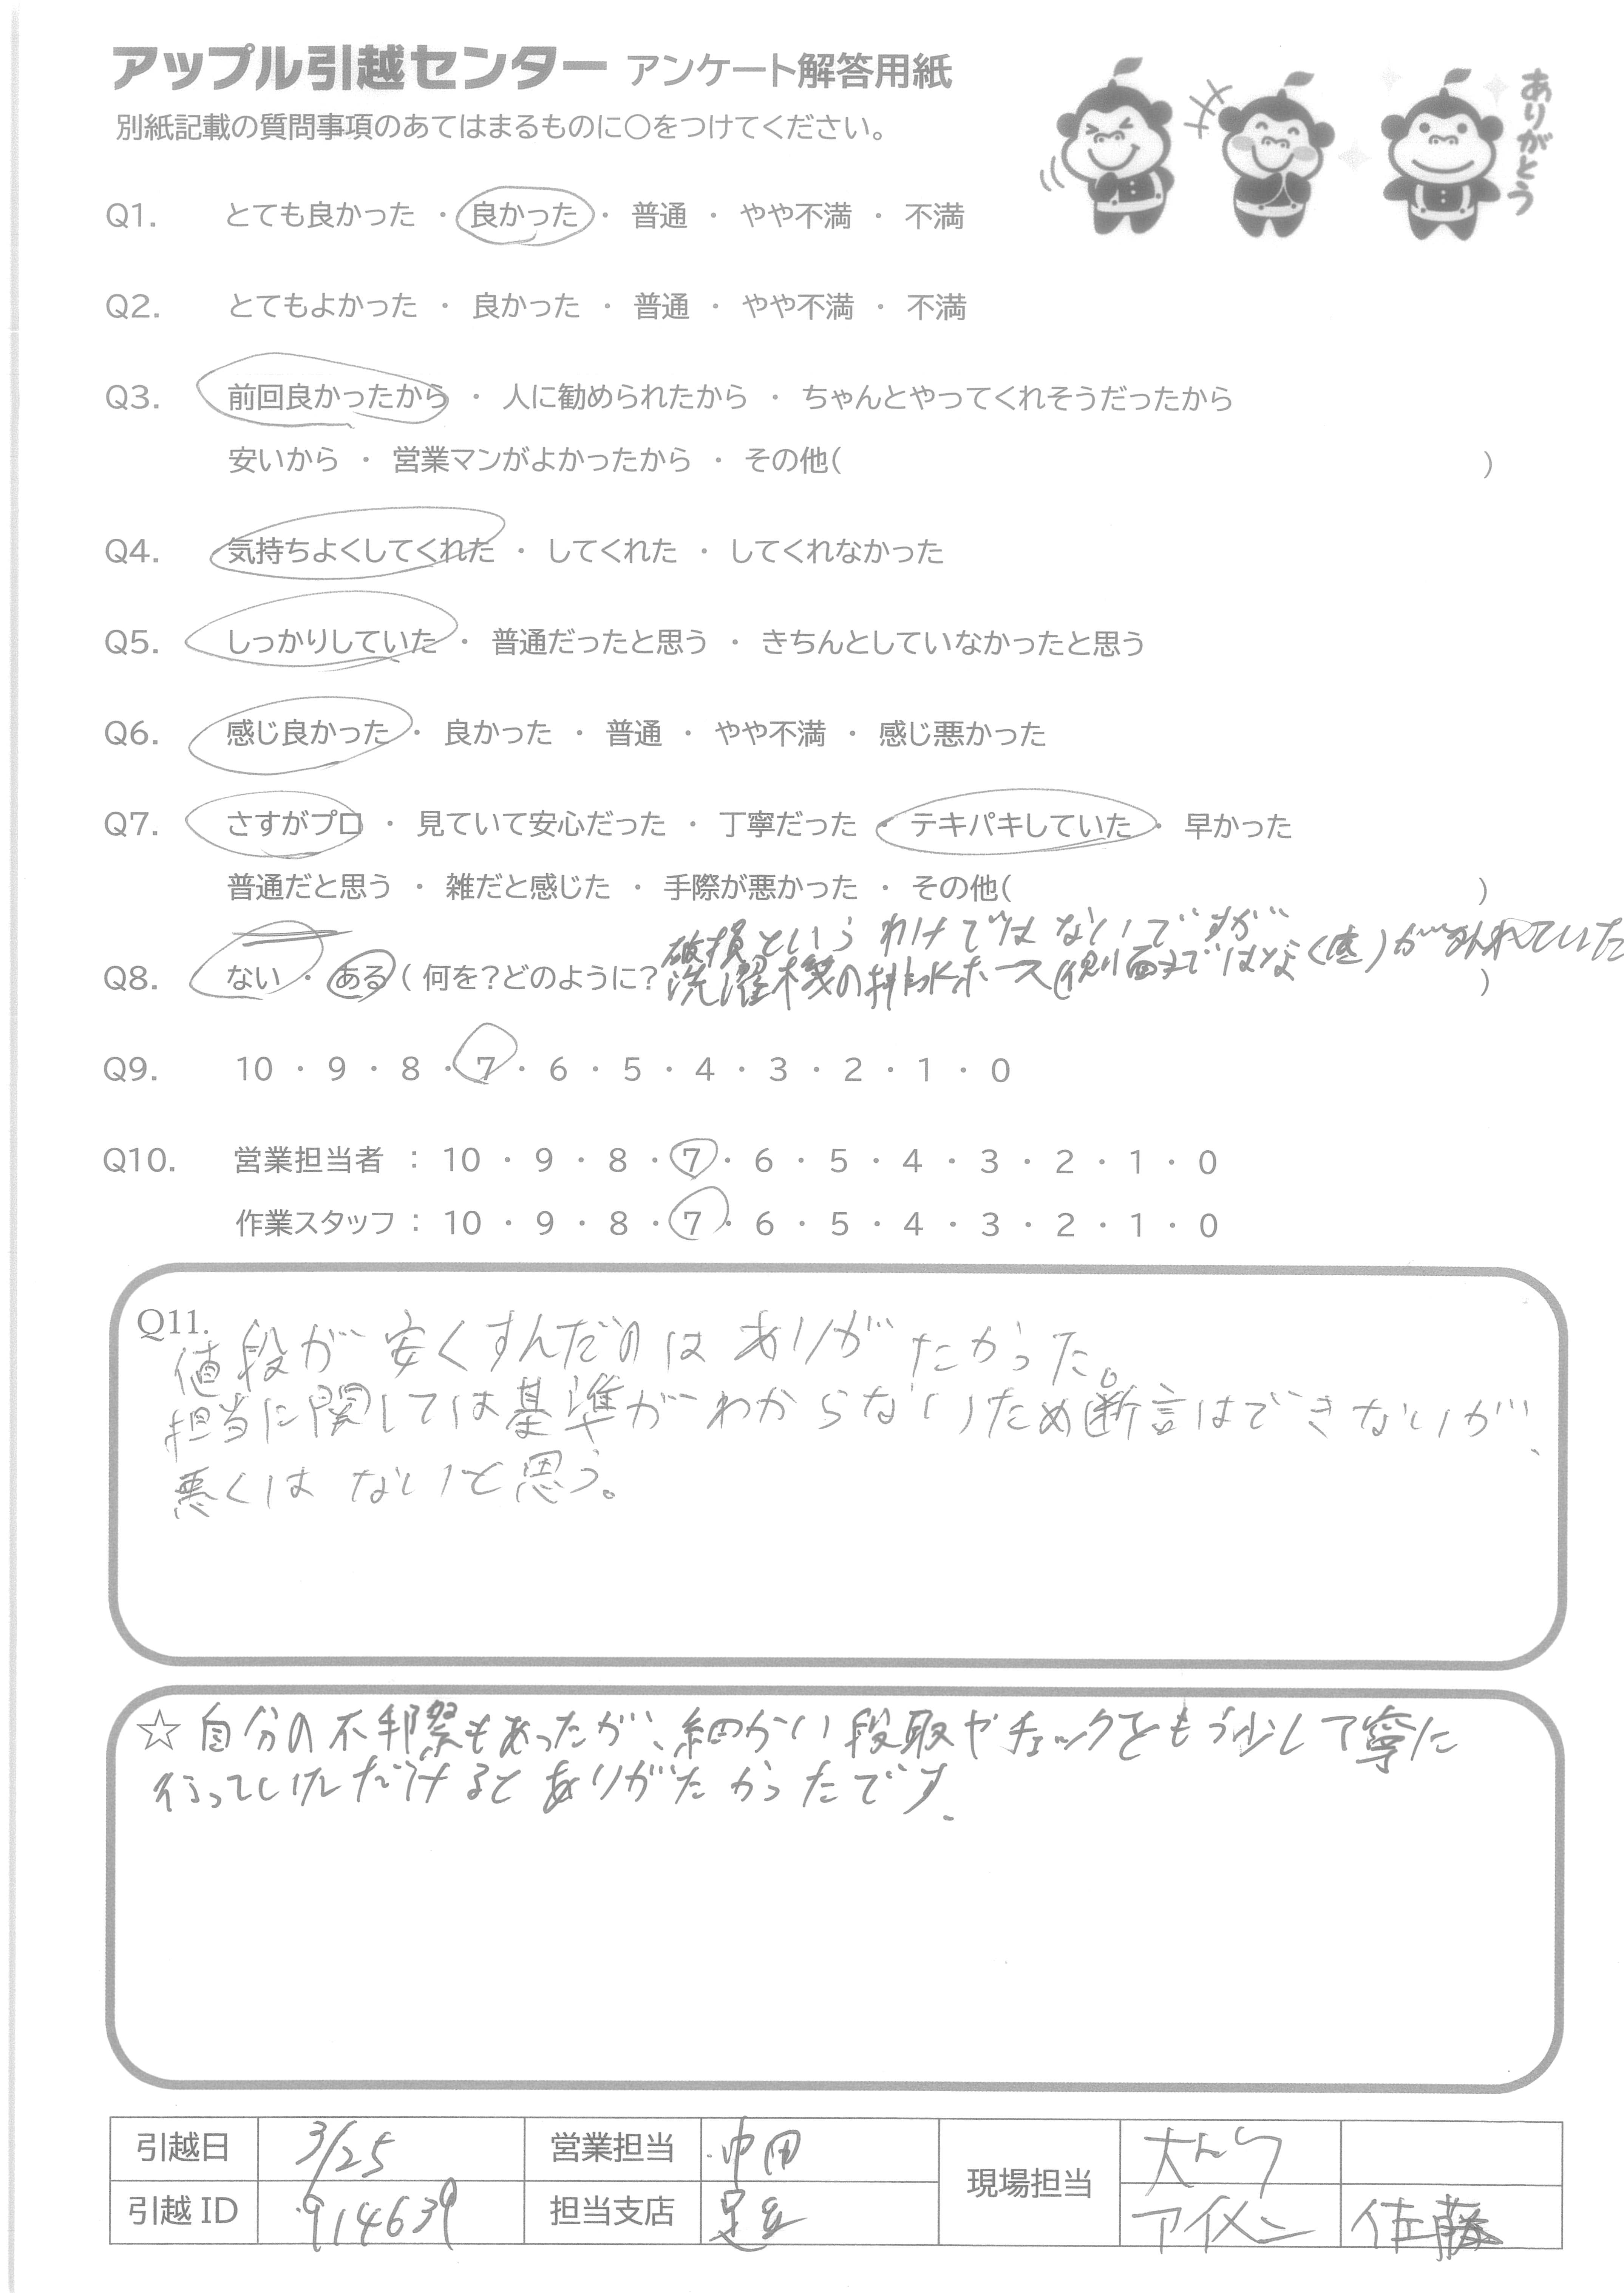 アップル引越センター アンケート解答用紙
別紙記載の質問事項のあてはまるものに○をつけてください。
ありがとう
Q1. とても良かった ・ 良かった ・ 普通 ・ やや不満 ・ 不満
Q2. とてもよかった ・ 良かった ・ 普通 ・ やや不満 ・ 不満
Q3. 前回良かったから ・ 人に勧められたから ・ ちゃんとやってくれそうだったから
安いから ・ 営業マンがよかったから ・ その他( )
Q4. 気持ちよくしてくれた ・ してくれた ・ してくれなかった
Q5. しっかりしていた ・ 普通だったと思う ・ きちんとしていなかったと思う
Q6. 感じ良かった ・ 良かった ・ 普通 ・ やや不満 ・ 感じ悪かった
Q7. さすがプロ ・ 見ていて安心だった ・ 丁寧だった ・ テキパキしていた ・ 早かった
普通だと思う ・ 雑だと感じた ・ 手際が悪かった ・ その他( )
破損というわけではないですが
Q8. ない ・ ある ( 何を?どのように? 洗濯機の排水ホース(側面ではなく底)が れていた )
Q9. 10 ・ 9 ・ 8 ・ 7 ・ 6 ・ 5 ・ 4 ・ 3 ・ 2 ・ 1 ・ 0
Q10. 営業担当者 : 10 ・ 9 ・ 8 ・ 7 ・ 6 ・ 5 ・ 4 ・ 3 ・ 2 ・ 1 ・ 0
作業スタッフ : 10 ・ 9 ・ 8 ・ 7 ・ 6 ・ 5 ・ 4 ・ 3 ・ 2 ・ 1 ・ 0
Q11.
値段が安くすんだのはありがたかった。
担当に関しては基準がわからないため断言はできないが、
悪くはないと思う。
☆ 自分の不手際もあったが、細かい段取やチェックをもう少し丁寧に
行っていただけるとありがたかったです.
引越日 3/25 営業担当 中田 現場担当
引越 ID 914639 担当支店 足立 アイメン 佐藤